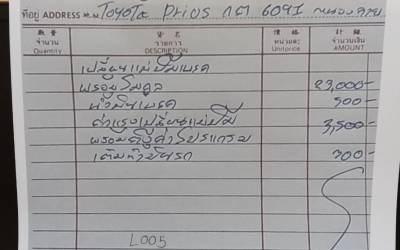 ที่อยู่ ADDRESS ที่.M. Toyota Prius กต 6091 หนองคาย
數量 貨名 價格 計銀
จำนวน รายการ หน่วยละ จำนวนเงิน
Quantity DESCRIPTION Unitprice AMOUNT
เปลี่ยนแม่ปั๊มเบรค
พร้อมโมดูล 23,000-
น้ำมันเบรค 500-
ค่าแรงเปลี่ยนแม่ปั๊ม 3,500-
พร้อมตั้งค่าโปรแกรม
เติมน้ำมันรถ 700-
L005